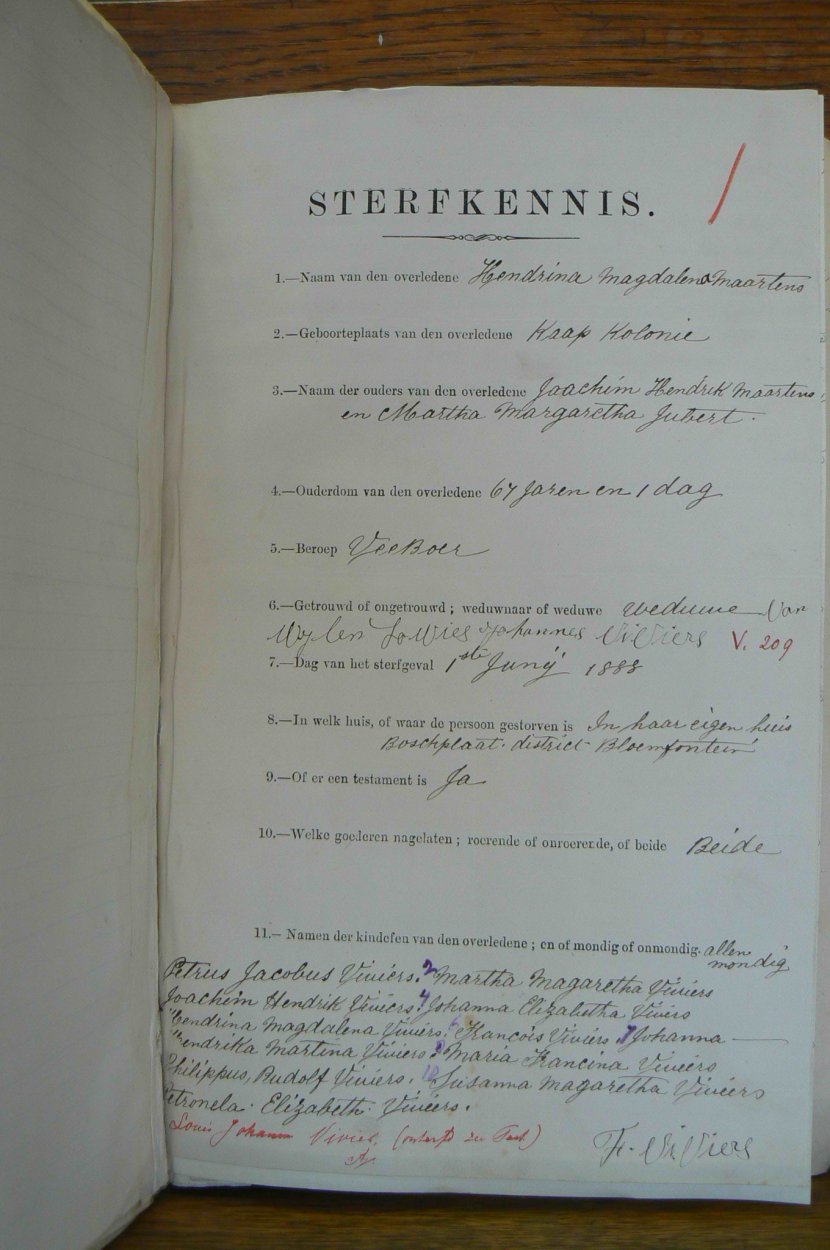 STERFKENNIS.
1.—Naam van den overledene Hendrina Magdalena Maartens
2.—Geboorteplaats van den overledene Kaap Kolonie
3.—Naam der ouders van den overledene Joachim Hendrik Maartens
en Martha Margaretha Jubert.
4.—Ouderdom van den overledene 67 Jaren en 1 dag
5.—Beroep VeeBoer
6.—Getrouwd of ongetrouwd; weduwnaar of weduwe weduwe Van
Wylen Lowies Johannes ViViers V. 209
7.—Dag van het sterfgeval 1ste Junij 1888
8.—In welk huis, of waar de persoon gestorven is In haar eigen huis
Boschplaat. district Bloemfontein
9.—Of er een testament is Ja
10.—Welke goederen nagelaten; roerende of onroerende, of beide Beide
11.—Namen der kinderen van den overledene; en of mondig of onmondig. allen
mondig
Petrus Jacobus Viviers. 2 Martha Magaretha Viviers
Joachim Hendrik Viviers. 4 Johanna Elizabetha Viviers
Hendrina Magdalena Viviers. 6 Francois Viviers. 7 Johanna
Hendrika Martina Viviers. Maria Francina Viviers
Philippus, Rudolf Viviers. 10 Susanna Magaretha Viviers
Petronela. Elizabeth. Viviers.
Louis Johannes Vivier.
F. ViViers